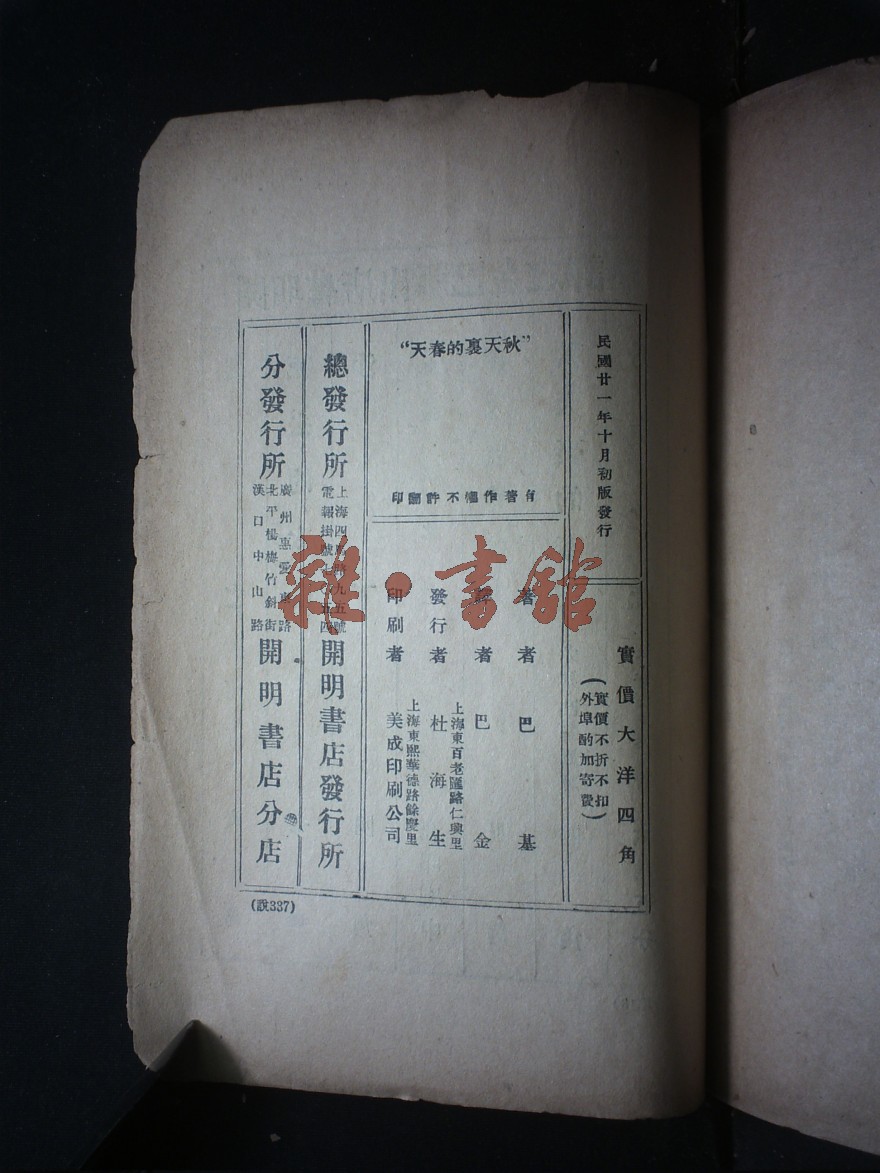 民國廿一年十月初版發行
實價大洋四角
(實價不折不扣
外埠酌加寄費)
"秋天裏的春天"
有著作權不許翻印
著者 巴基
譯者 巴金
發行者 杜海生
上海東百老匯路仁興里
印刷者 美成印刷公司
上海東熙華德路餘慶里
總發行所 上海四馬路九五號 電報掛號 開明書店發行所
分發行所 廣州惠愛東路 北平楊梅竹斜街 漢口中山路 開明書店分店
(說337)
雜·書館